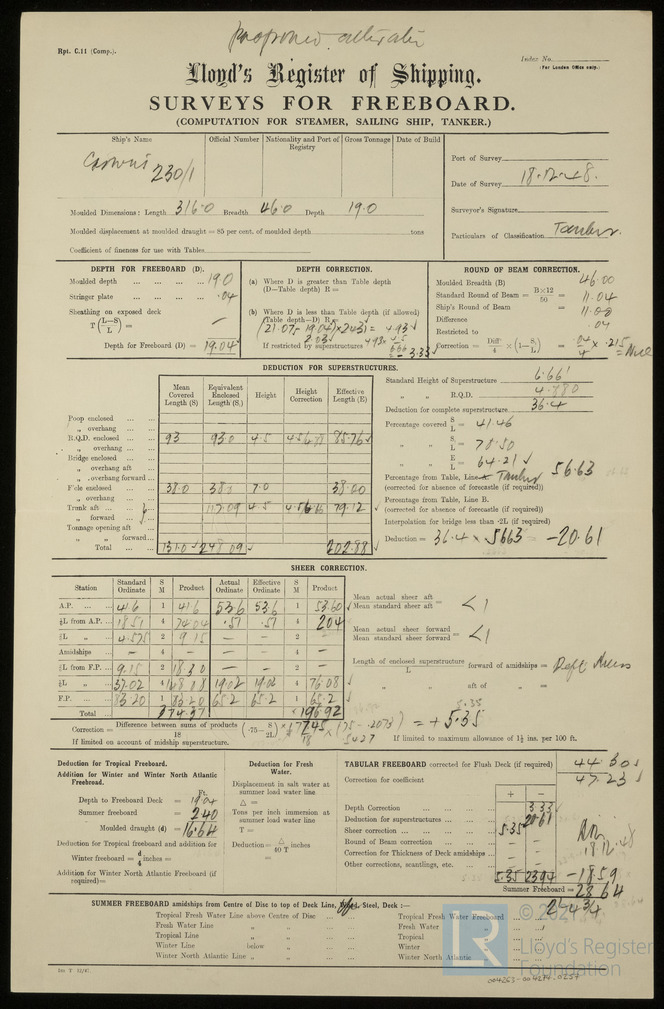 Proposed alteration
Rpt. C.11 (Comp.).
Index No.
(For London Office only.)
Lloyd's Register of Shipping.
SURVEYS FOR FREEBOARD.
(COMPUTATION FOR STEAMER, SAILING SHIP, TANKER.)
Ship's Name Official Number Nationality and Port of Registry Gross Tonnage Date of Build
230/1
Port of Survey
Date of Survey 18.12.48.
Surveyor's Signature
Particulars of Classification Tanker.
Moulded Dimensions: Length 316.0 Breadth 46.0 Depth 19.0
Moulded displacement at moulded draught = 85 per cent. of moulded depth tons
Coefficient of fineness for use with Tables
DEPTH FOR FREEBOARD (D).
Moulded depth 19.0
Stringer plate .04
Sheathing on exposed deck
T (L—S / L) = —
Depth for Freeboard (D) = 19.04
DEPTH CORRECTION.
(a) Where D is greater than Table depth
(D—Table depth) R =
(b) Where D is less than Table depth (if allowed)
(Table depth—D) R =
(21.07 - 19.04) × 2.431 = 4.93
2.03
If restricted by superstructures 3.33
ROUND OF BEAM CORRECTION.
Moulded Breadth (B) 46.00
Standard Round of Beam = B×12 / 50 = 11.04
Ship's Round of Beam = 11.00
Difference .04
Restricted to
Correction = Diff / 4 × (1—S₁/L) = .04 / 4 × .215 = Nil
DEDUCTION FOR SUPERSTRUCTURES.
Mean Covered Length (S) Equivalent Enclosed Length (S₁) Height Height Correction Effective Length (E)
Poop enclosed
„ overhang
R.Q.D. enclosed 93 93.0 4.5 85.76
„ overhang
Bridge enclosed
„ overhang aft
„ overhang forward
F'cle enclosed 38.0 38.0 7.0 38.00
„ overhang
Trunk aft 117.09 4.5 79.12
„ forward
Tonnage opening aft
„ „ forward
Total 131.0 248.09 202.88
Standard Height of Superstructure 6.661
„ „ R.Q.D. 4.880
Deduction for complete superstructure 36.4
Percentage covered S/L = 41.46
„ „ S₁/L = 78.50
„ „ E/L = 64.21
Percentage from Table, Line Tanker 56.63
(corrected for absence of forecastle (if required))
Percentage from Table, Line B.
(corrected for absence of forecastle (if required))
Interpolation for bridge less than ·2L (if required)
Deduction = 36.4 × .5663 = -20.61
SHEER CORRECTION.
Station Standard Ordinate S M Product Actual Ordinate Effective Ordinate S M Product
A.P. 41.6 1 41.6 53.6 53.6 1 53.60
⅙L from A.P. 18.51 4 74.04 .51 .51 4 2.04
⅓L „ 4.575 2 9.15 — — 2
Amidships — 4 — — — 4 —
⅓L from F.P. 9.15 2 18.30 — — 2 —
⅙L „ 37.02 4 148.08 19.02 19.02 4 76.08
F.P. 83.20 1 83.20 65.2 65.2 1 65.2
Total 374.37 196.92
Mean actual sheer aft / Mean standard sheer aft = <1
Mean actual sheer forward / Mean standard sheer forward = <1
Length of enclosed superstructure / L forward of amidships =
„ „ aft of „ =
5.35
Correction = Difference between sums of products / 18 (·75— S/2L) = 177.45 / 18 × (.75 - .2073) = + 5.35
.5427
If limited on account of midship superstructure.
If limited to maximum allowance of 1½ ins. per 100 ft.
Deduction for Tropical Freeboard.
Addition for Winter and Winter North Atlantic Freeboard.
Ft.
Depth to Freeboard Deck = 19.04
Summer freeboard = 2.40
Moulded draught (d) = 16.64
Deduction for Tropical freeboard and addition for
Winter freeboard = d/4 inches =
Addition for Winter North Atlantic Freeboard (if required) =
Deduction for Fresh Water.
Displacement in salt water at summer load water line
Δ =
Tons per inch immersion at summer load water line
T =
Deduction = Δ / 40 T inches
=
TABULAR FREEBOARD corrected for Flush Deck (if required) 44.30
Correction for coefficient 47.23
+ —
Depth Correction 3.33
Deduction for superstructures 20.61
Sheer correction 5.35
Round of Beam correction — —
Correction for Thickness of Deck amidships — —
Other corrections, scantlings, etc. — —
5.35 23.94 -18.59
18.12.48
Summer Freeboard = 28.64
SUMMER FREEBOARD amidships from Centre of Disc to top of Deck Line, Wood, Steel, Deck :—
2' 4¾
Tropical Fresh Water Line above Centre of Disc
Fresh Water Line „ „
Tropical Line „ „
Winter Line below „
Winter North Atlantic Line „ „
Tropical Fresh Water Freeboard
Fresh Water „
Tropical „
Winter „
Winter North Atlantic „
© 2021
LR
Lloyd's Register
Foundation
004263-004274-0257